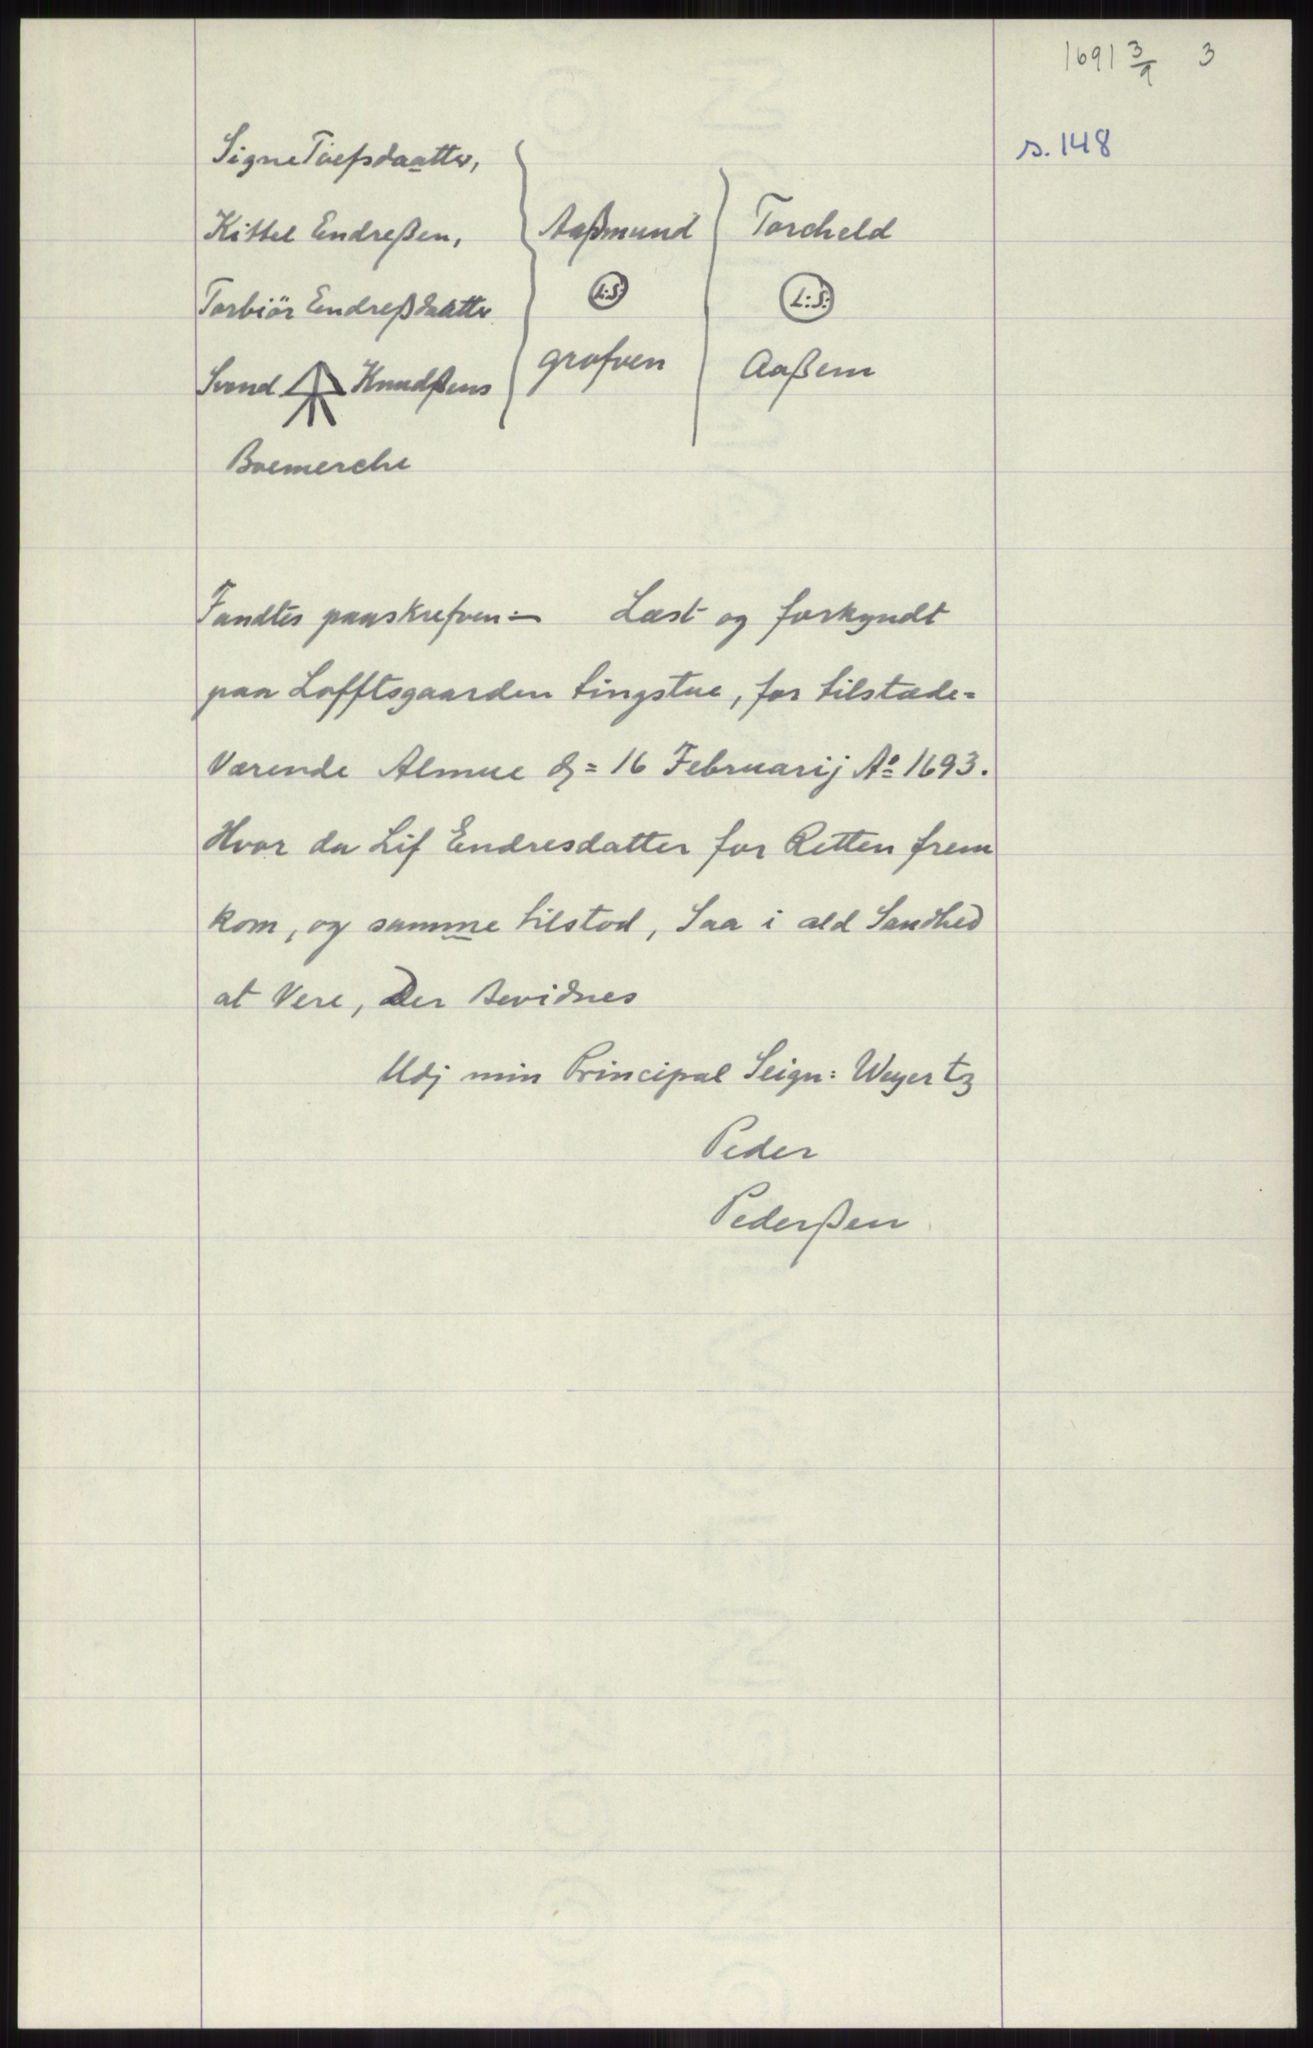 1691 3/9 3
s. 148
Signe Toefsdaatter,
Kittel Endreßen,
Torbiör Endreßdaatter
Svend Knudßens
Boemerche
Aaßmund
L:S:
grafven
Torcheld
L:S:
Aaßem
Fandtes paaskrefven :- Læst og forkyndt
paa Lofftsgaarden tingstue, for tilstæde=
Værende Almue d= 16 Februarij A° 1693.
Hvor da Lif Endresdatter for Retten frem
kom, og samme tilstod, Saa i ald Sandhed
at Vere, Der bevidnes
Udj min Principal Seign: Weyertz
Peder
Pederßen